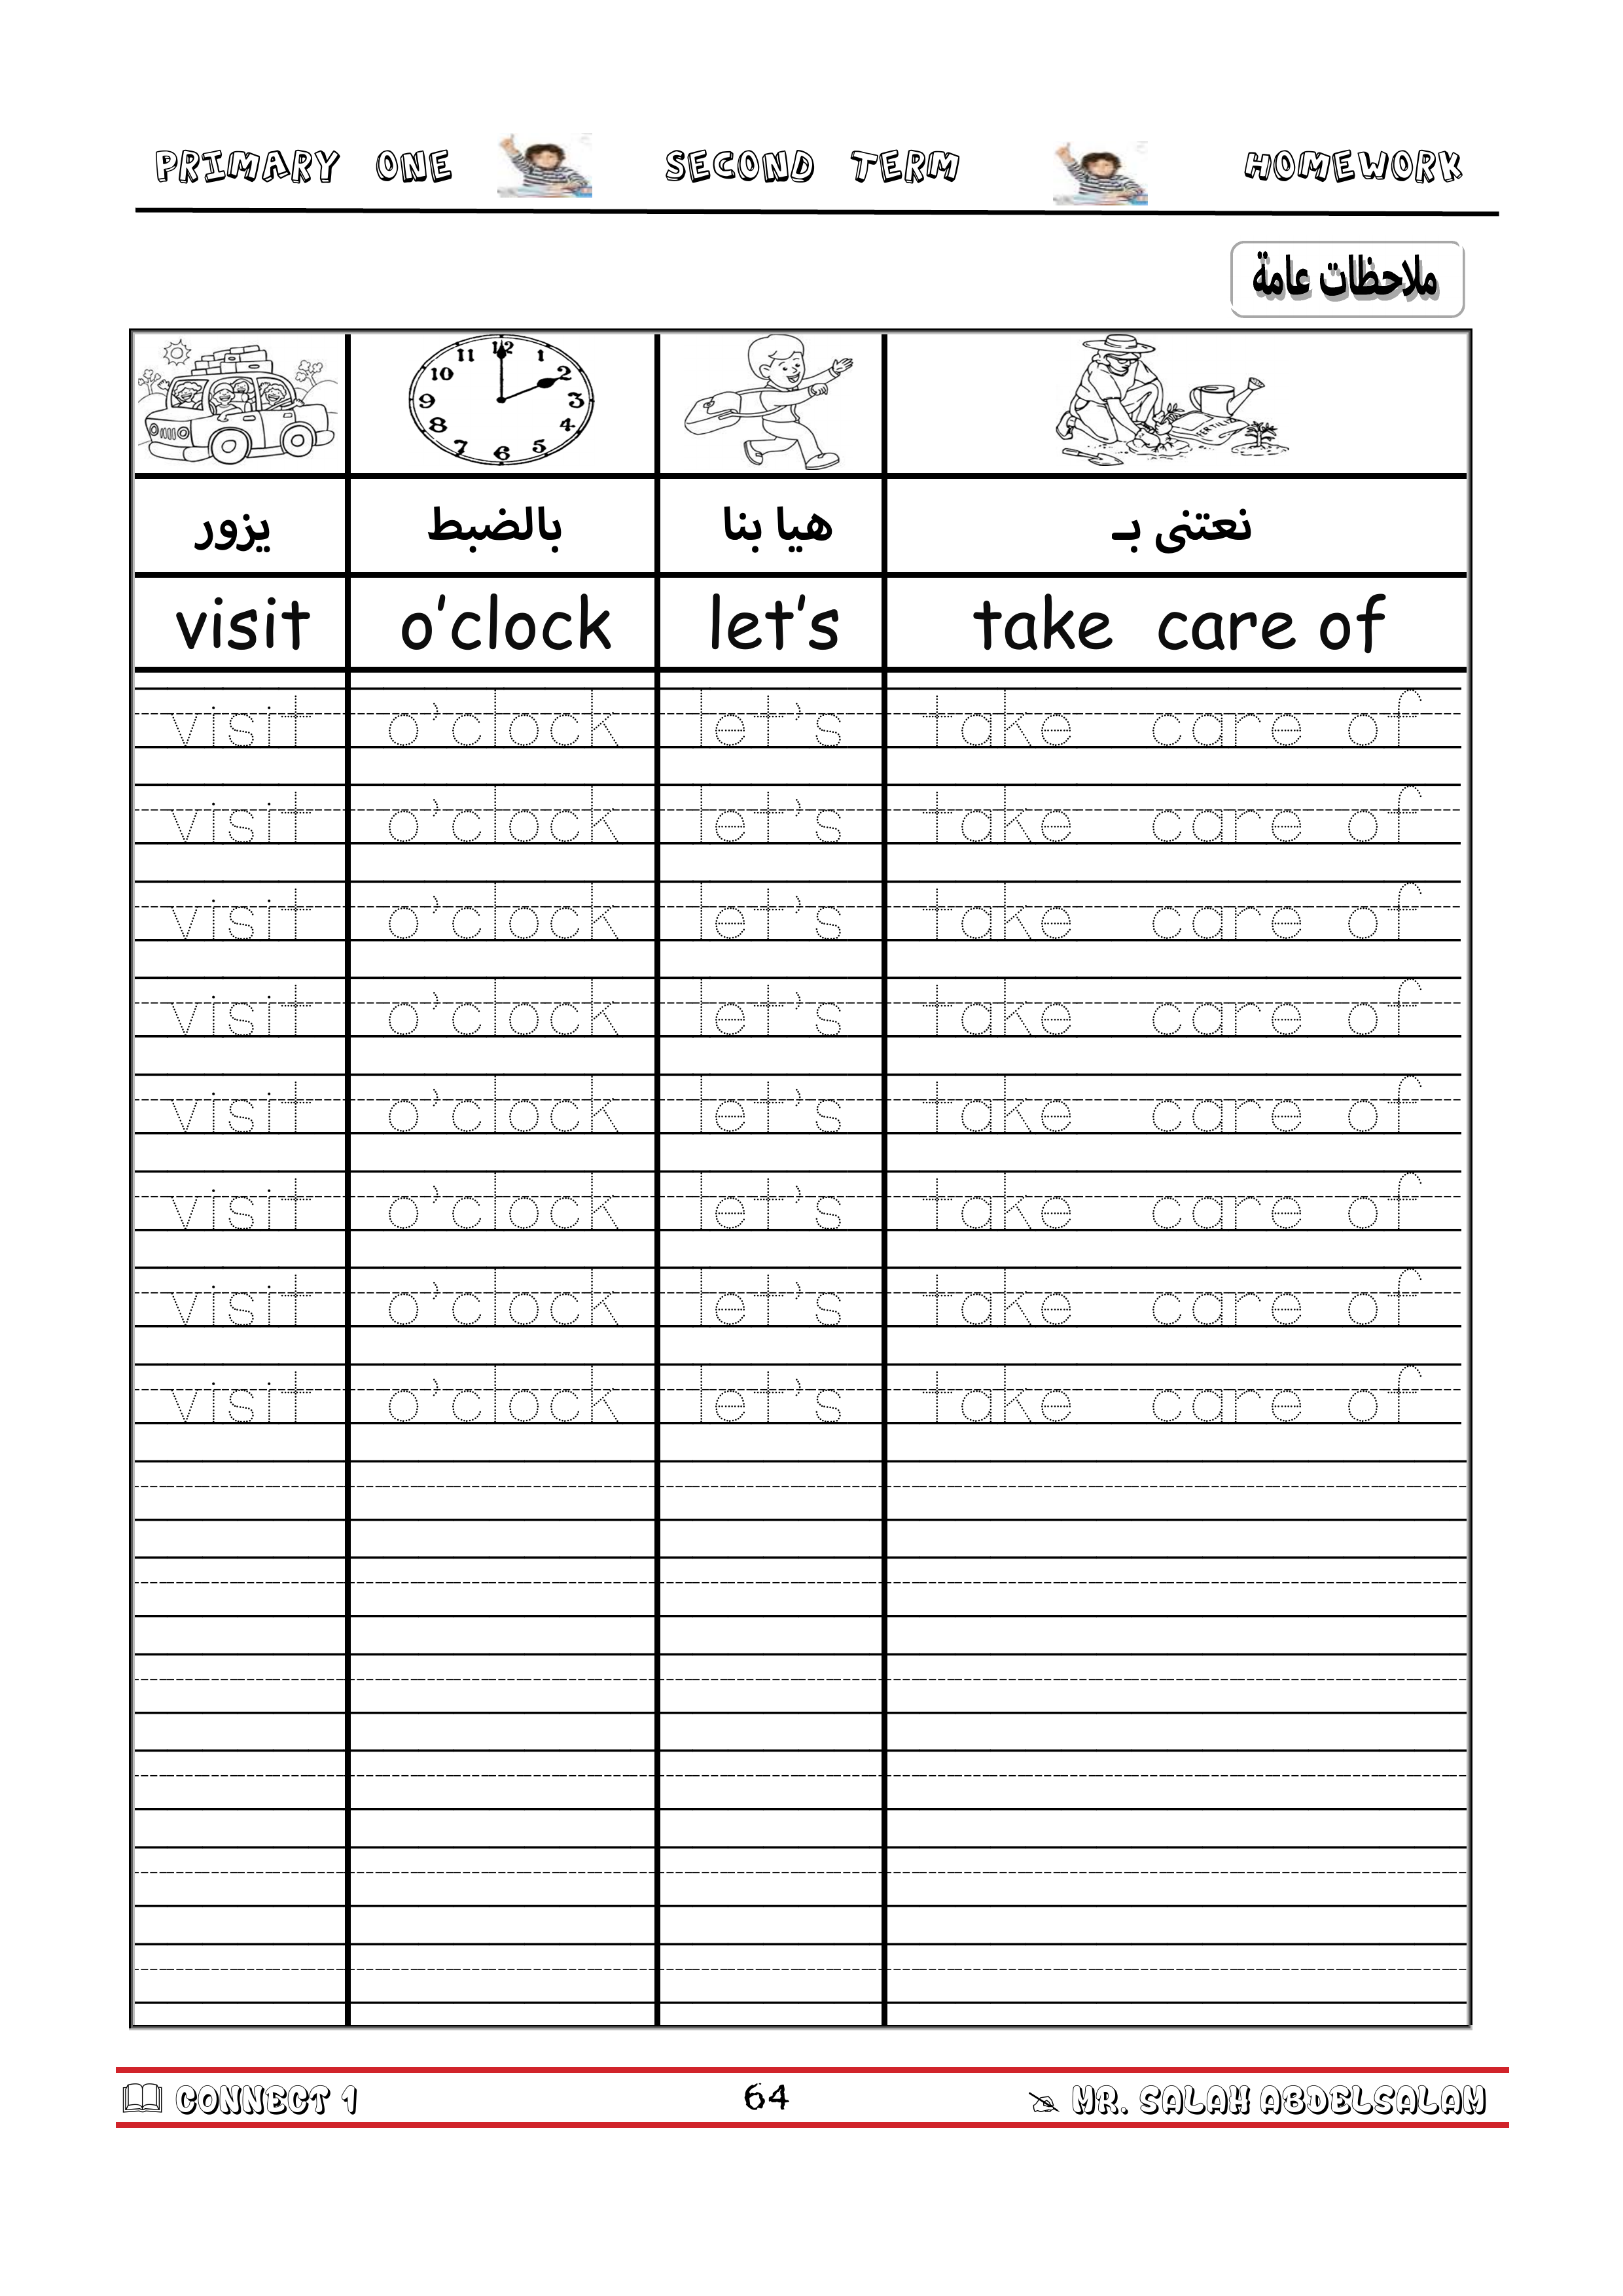 PRIMARY ONE SECOND TERM HOMEWORK
ملاحظات عامة
11 12 1
10 2
9 3
8 4
7 6 5
FERTILI
يزور بالضبط هيا بنا نعتنى بـ
visit o’clock let’s take care of
visit o’clock let’s take care of
visit o’clock let’s take care of
visit o’clock let’s take care of
visit o’clock let’s take care of
visit o’clock let’s take care of
visit o’clock let’s take care of
visit o’clock let’s take care of
visit o’clock let’s take care of
CONNECT 1 64 MR. SALAH ABDELSALAM